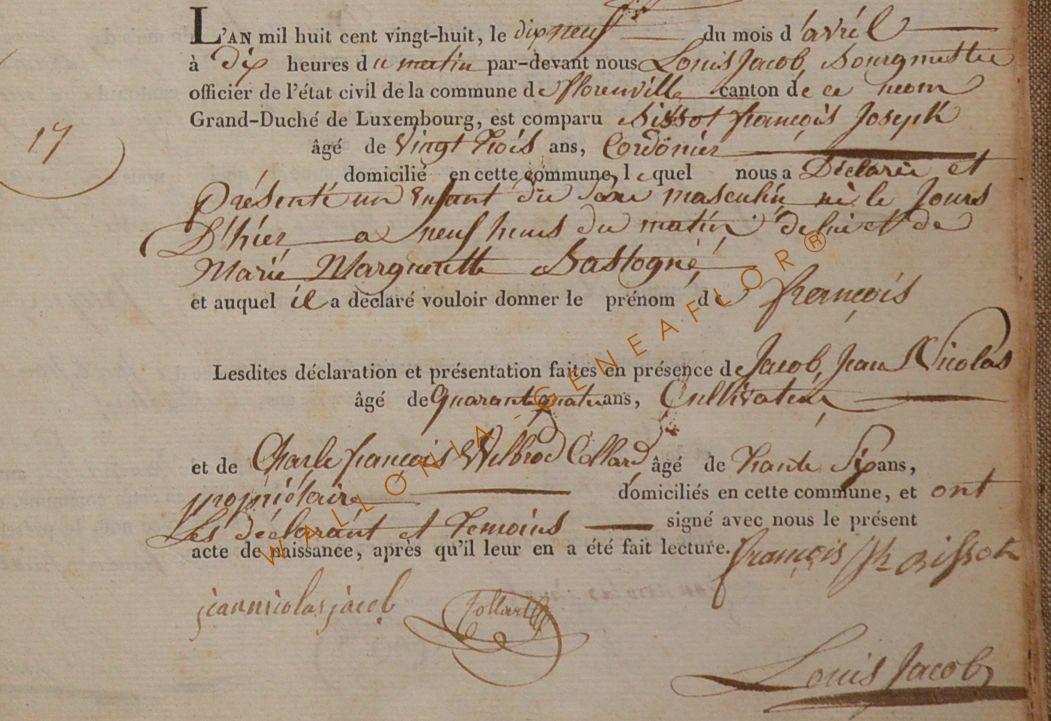 L'AN mil huit cent vingt-huit, le dix neuf du mois d'avril
à Dix heures du matin par-devant nous Louis Jacob, Bourgmestre
officier de l'état civil de la commune de florenville canton de ce nom
Grand-Duché de Luxembourg, est comparu Bissot françois Joseph
17
âgé de Vingt trois ans, Cordonier
domicilié en cette commune, lequel nous a Déclaré et
Présenté un Enfant du Sexe masculin né le Jours
D'hier a neuf heures du matin de lui et de
Marie Margueritte Bastogne
et auquel il a déclaré vouloir donner le prénom de françois
Lesdites déclaration et présentation faites en présence de Jacob, Jean Nicolas
âgé de quarante quatre ans, Cultivateur
et de Charle françois Wilbrod Collard âgé de trente Six ans,
propriétaire domiciliés en cette commune, et ont
Les déclarant et temoins signé avec nous le présent
acte de naissance, après qu'il leur en a été fait lecture.
françois Bissot
jean nicolas jacob Collard
Louis Jacob
WALLONIA-GENEAFLOR®